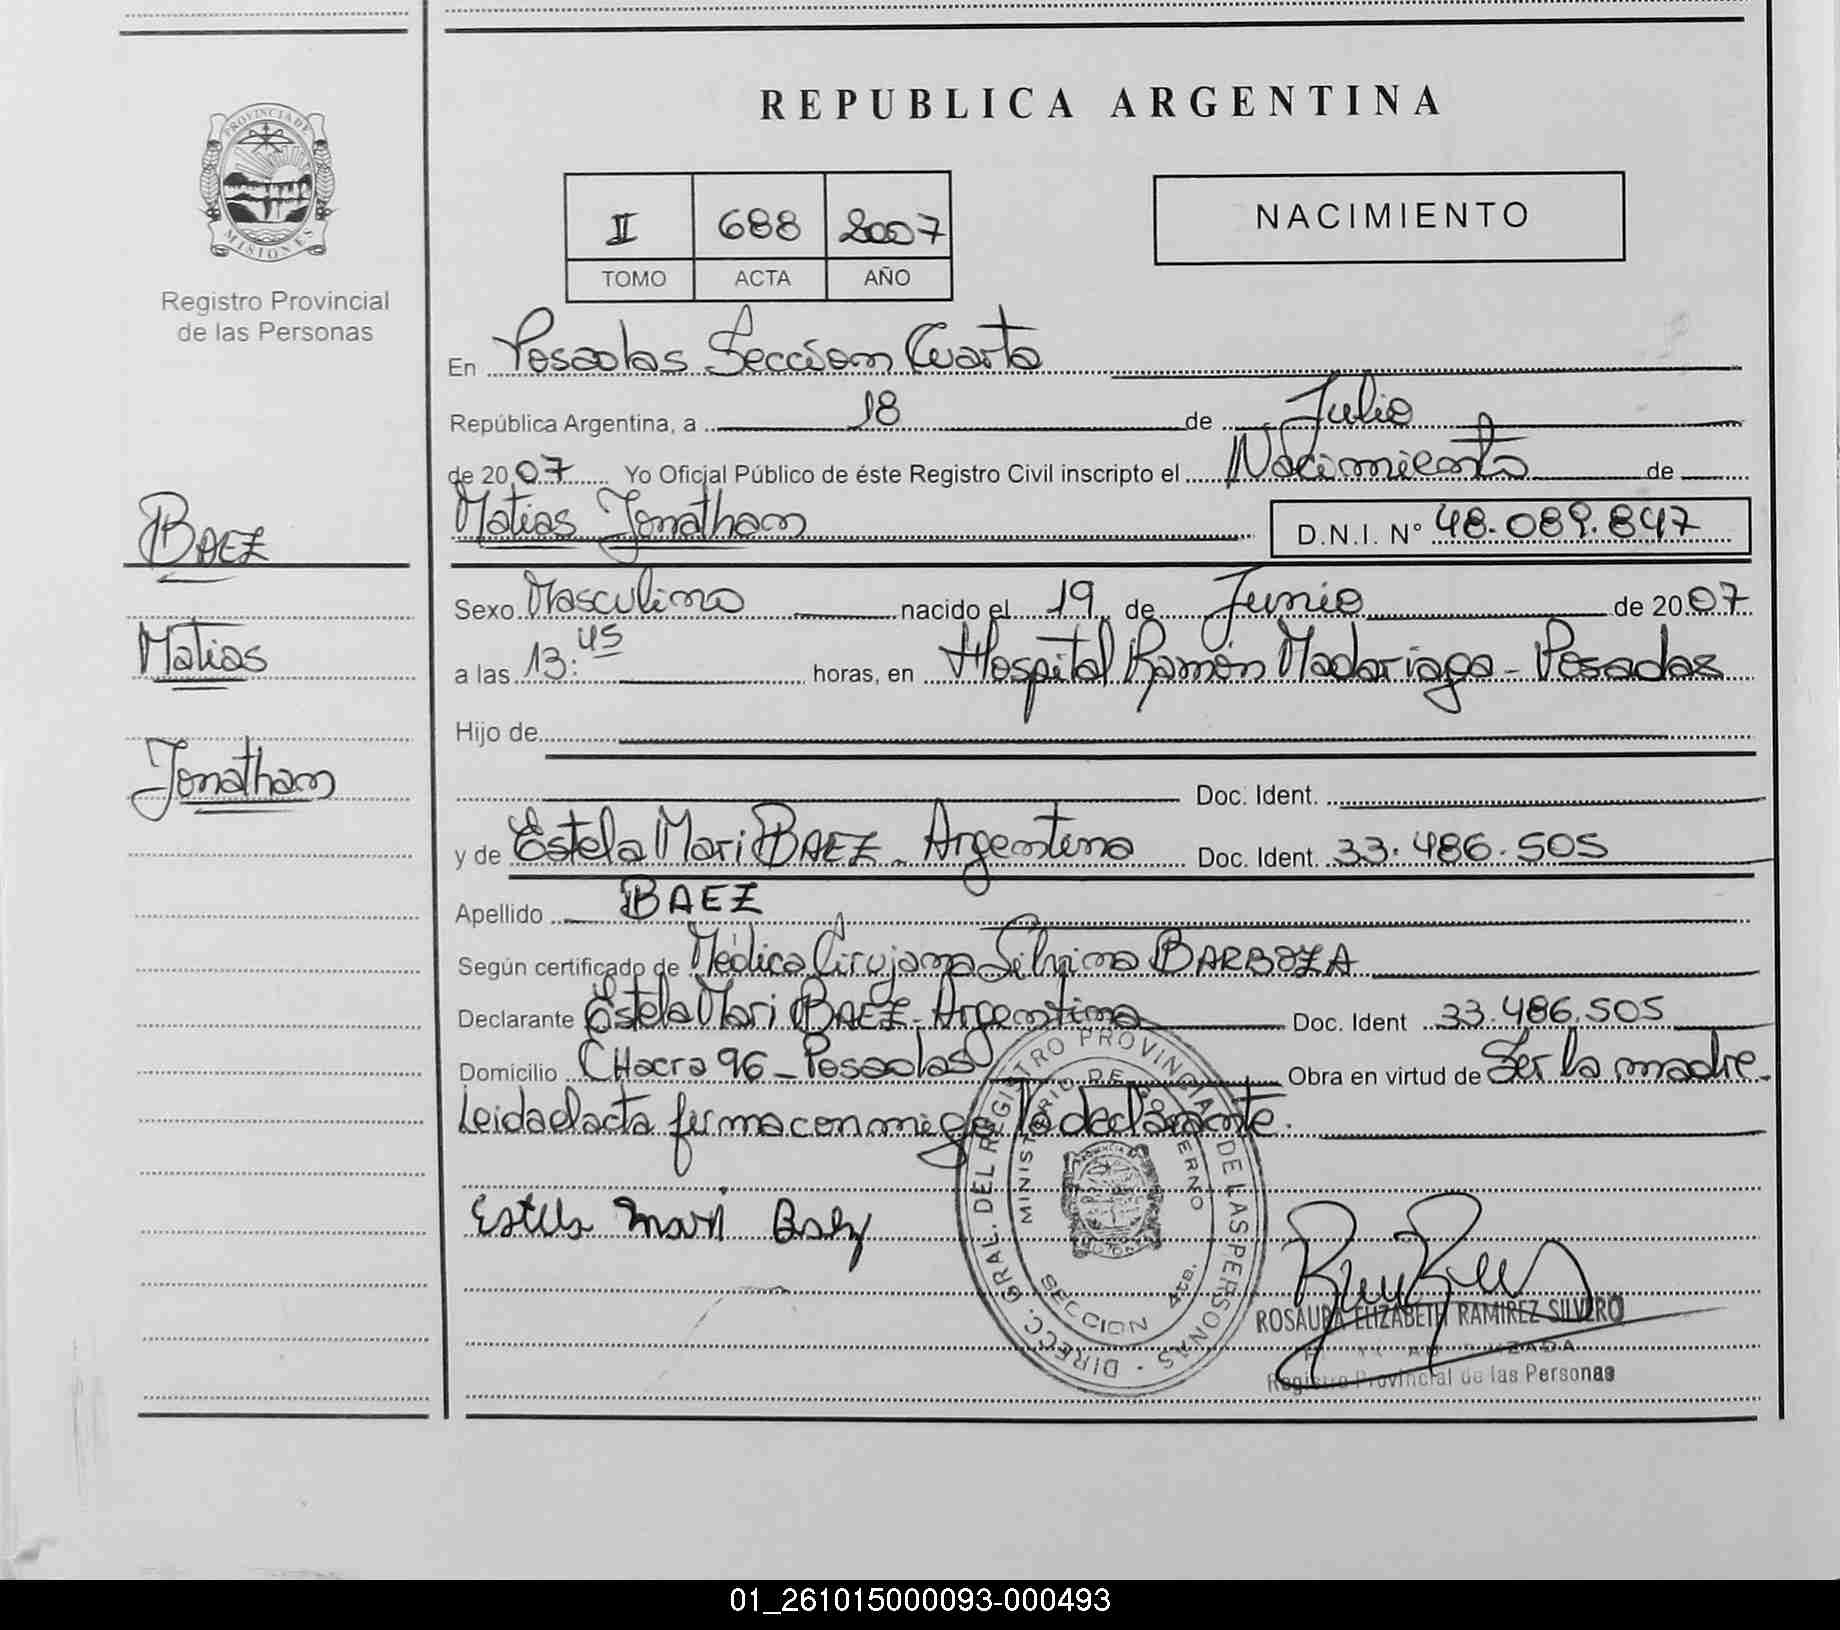 PROVINCIA DE
MISIONES
Registro Provincial
de las Personas
BAEZ
Matias
Jonathan
REPUBLICA ARGENTINA
II 688 2007
TOMO ACTA AÑO
NACIMIENTO
En Posadas Sección Cuarta
República Argentina, a 18 de Julio
de 2007 Yo Oficial Público de éste Registro Civil inscripto el Nacimiento de
Matias Jonathan D.N.I. Nº 48.089.847
Sexo Masculino nacido el 19 de Junio de 2007
a las 13:45 horas, en Hospital Ramón Madariaga - Posadas
Hijo de
Doc. Ident.
y de Estela Mari BAEZ - Argentina Doc. Ident. 33.486.505
Apellido BAEZ
Según certificado de Médica Cirujana Silvina BARBOZA
Declarante Estela Mari BAEZ - Argentina Doc. Ident 33.486.505
Domicilio CHacra 96 - Posadas Obra en virtud de Ser la madre.
Leida el acta firma conmigo la declarante.
Estela Mari Baez
DIRECC. GRAL. DEL REGISTRO PROVINCIAL DE LAS PERSONAS -
MINISTERIO DE GOBIERNO
SECCION 4ta.
ROSAURA ELIZABETH RAMIREZ SILVERO
Registro Provincial de las Personas
01_261015000093-000493